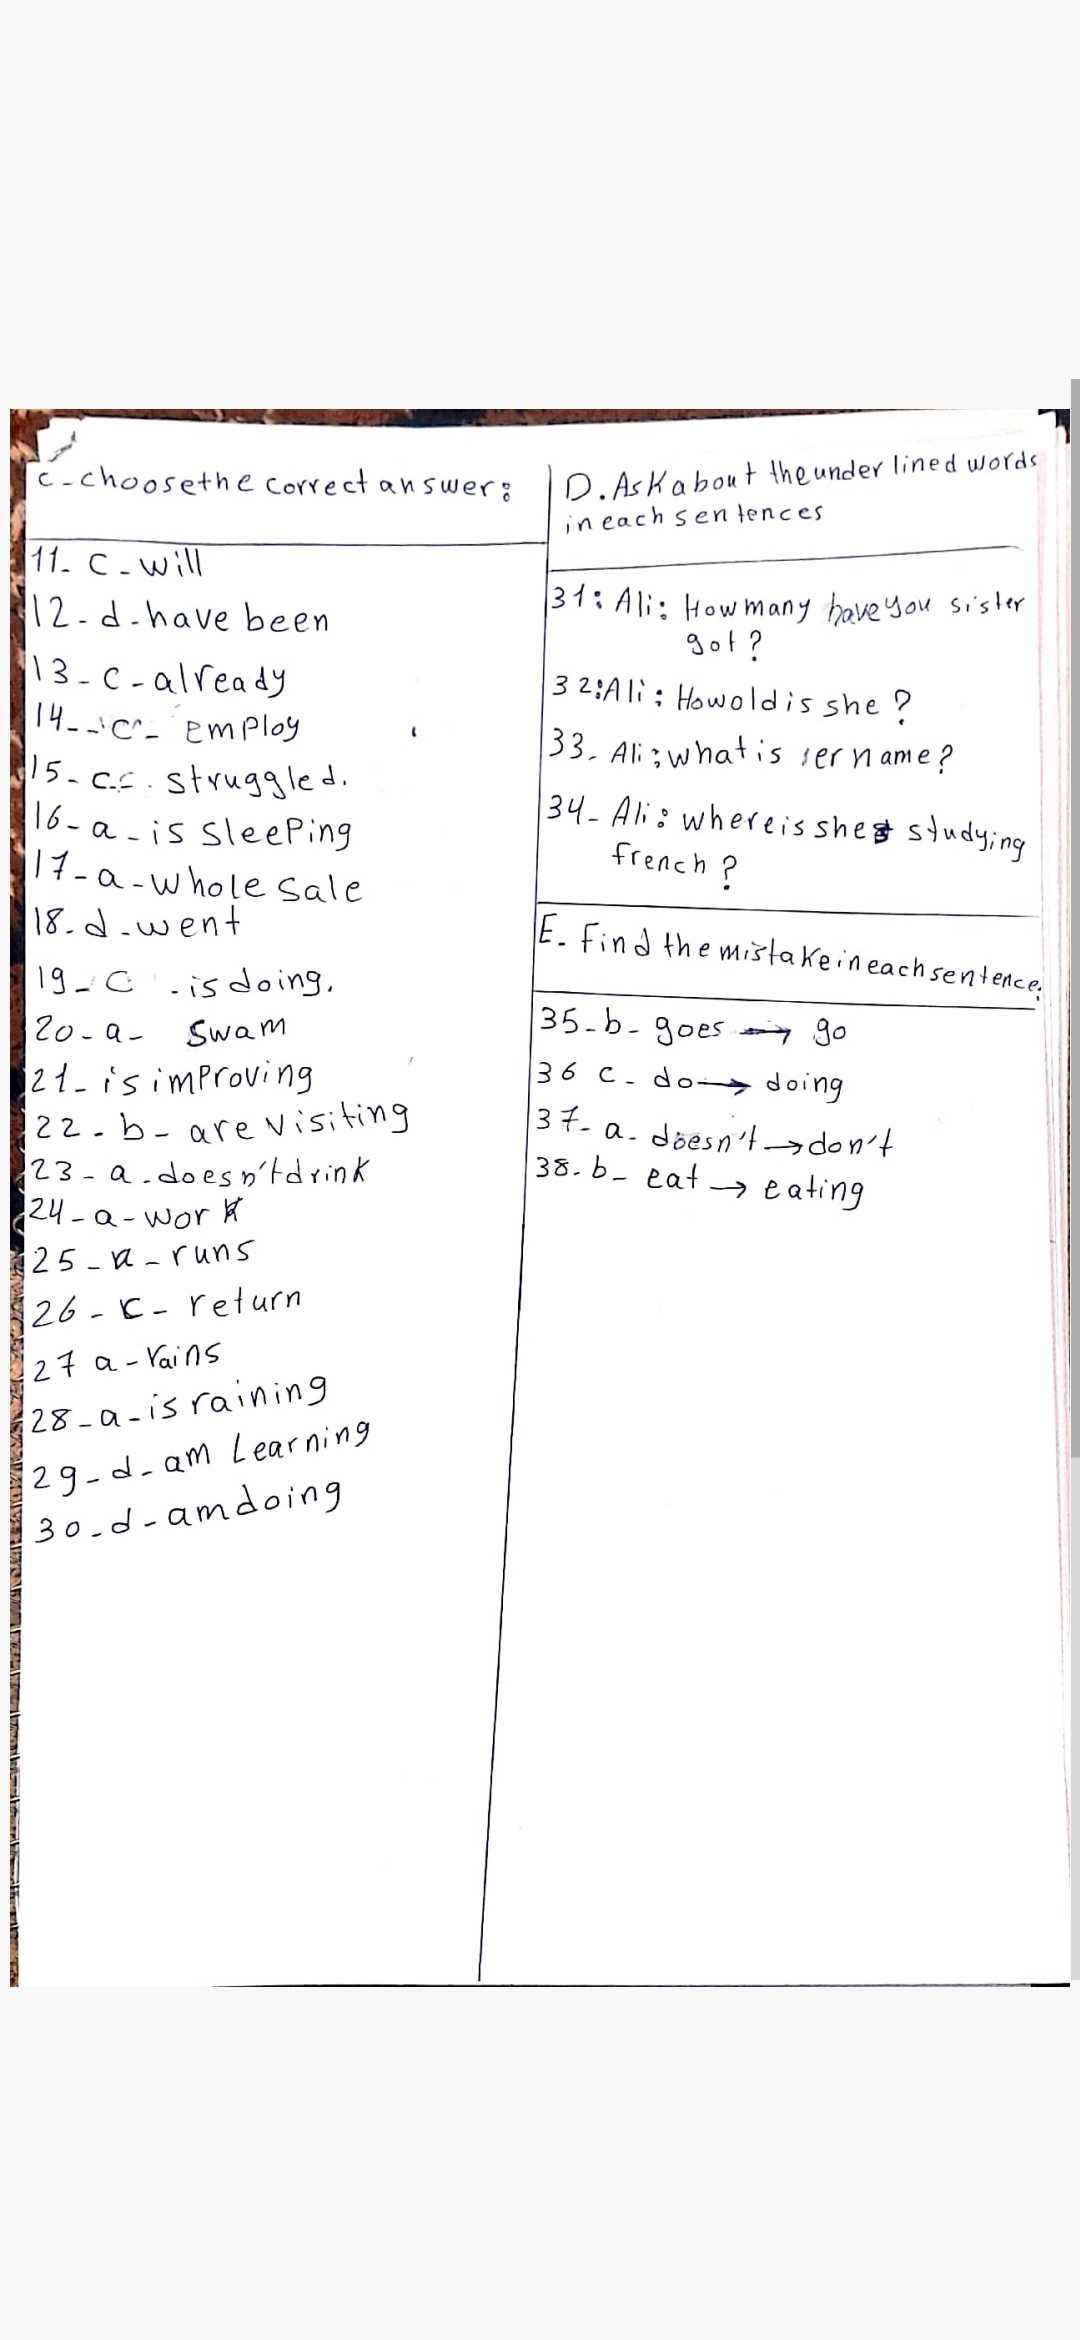 C-choose the correct answer:
11- C-will
12-d-have been
13-C-already
14--C-employ
15-c.c. struggled.
16-a-is sleeping
17-a-whole sale
18-d-went
19-C -is doing.
20-a- swam
21-is improving
22-b-are visiting
23-a-doesn't drink
24-a-work
25-a-runs
26-c-return
27 a-rains
28-a-is raining
29-d-am Learning
30-d-am doing
D. Ask about the under lined words
in each sentences
31: Ali: How many have you sister
got?
32: Ali: How old is she?
33- Ali: what is name?
34- Ali: where is she studying
french?
E- Find the mistake in each sentence:
35-b-goes → go
36 c-do → doing
37-a-doesn't → don't
38-b-eat → eating